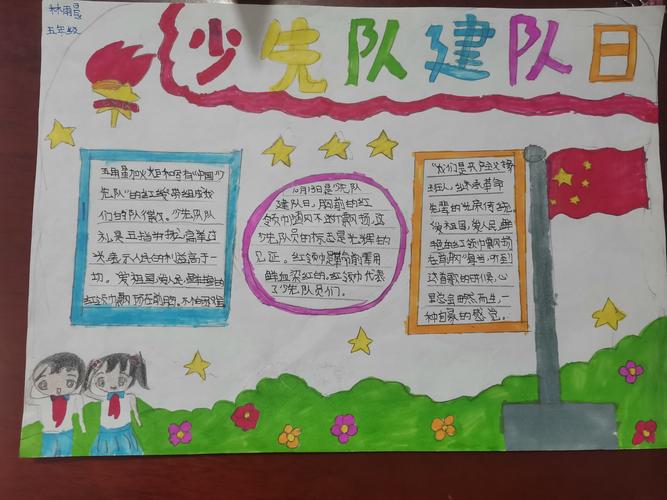 林朋昙
五年级
少先队建队日
五角星加火炬和写有"中国少
先队"的红绶带组成我
们的队徽。少先队队
礼是五指并拢,高举过
头,表示人民的利益高于一
切。"爱祖国,爱人民,鲜艳的
红领巾飘扬在前胸。
10月13日是少先队
建队日,胸前的红
领巾随风不断飘扬,这
少先队员的标志是光辉的
见证。红领巾是
鲜血染红的。红领巾代表
了少先队员们。
"我们是共产主义接
班人,继承革命
先辈的光荣传统。
爱祖国,爱人民,鲜
艳的红领巾飘扬
在前胸"每当听到
这首歌的时候,心
里总会油然而生,一
种自豪的感觉。